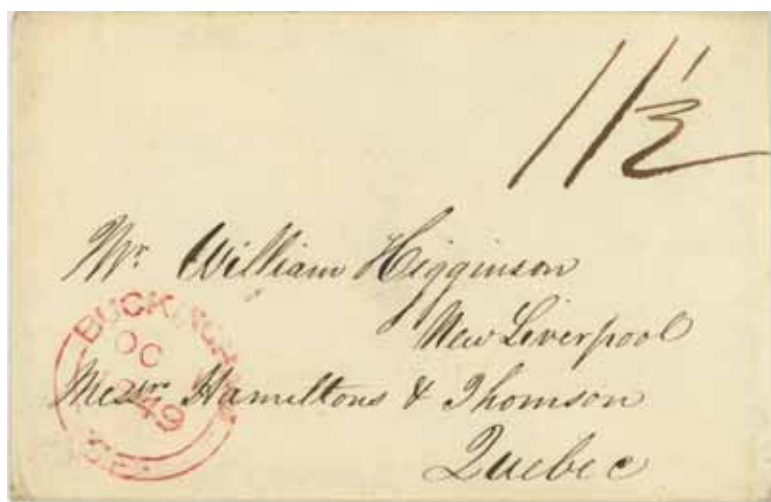 11½
Mr. William Higginson
New Liverpool
Messrs Hamiltons & Thomson
Quebec
OC
49